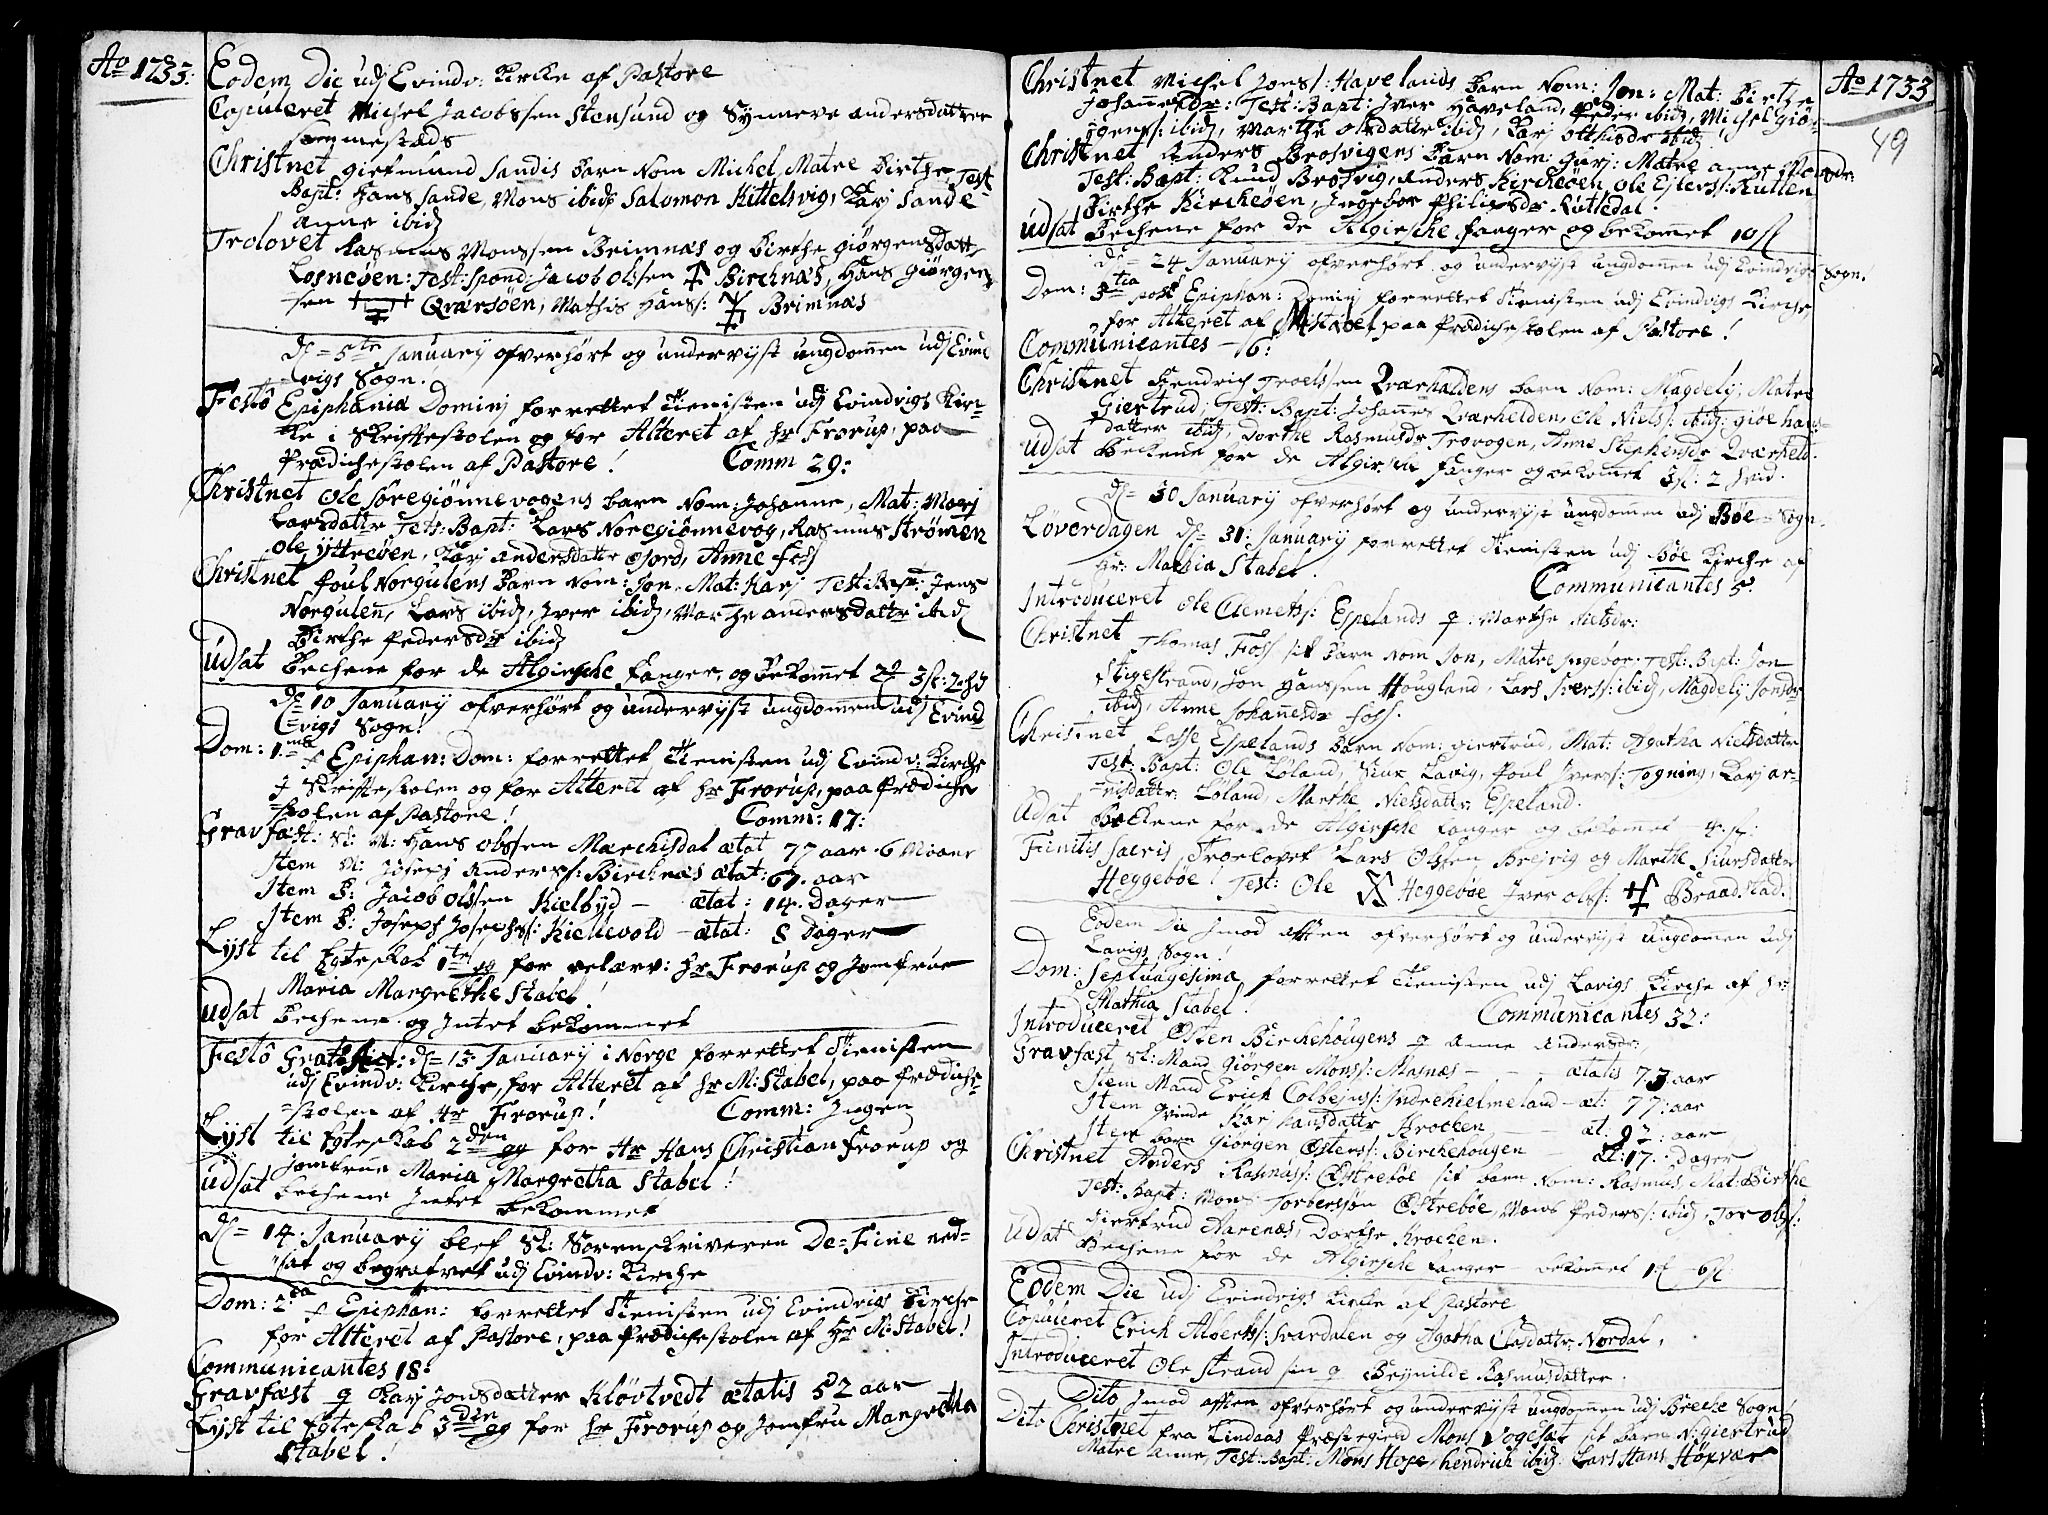 Ao 1733:
Eodem Die udj Evindv: Kirke af Pastore
Copuleret Michel Jacobssen Stensund og Synneve andersdatter
sammestæds
Christnet giermund Sandis barn Nom Michel, Matre Birthe, Test
Bapt: Hans Sande, Mons ibid: Salomon Kittelsvig, Karj Sande
anne ibid
Trolovet Rasmus Monssen Brimnæs og Birthe giørgensdatt
Losneøen: Test: Spond: Jacob Olssen Bircknæs, Hans giørgen
sen Qværsøen, Mathis Hans: Brimnæs
d= 5te January ofverhørt og undervjst ungdommen udj Evind
vigs Sogn.
Festô Epiphania Dominj forrettet Tienisten udj Evindvigs Kir-
ke i Skriftestolen og for Alteret af Hr Frorup, paa
Prædichestolen af Pastore! Comm 29:
Christnet Ole Søregiønnevogens barn Nom: Johanne, Mat: Marj
Larsdattr Test: Bapt: Lars Noregiønnevog, Rasmus Strømen
Ole Yttreøen, Karj andersdattr Fjord, Anne Foss
Christnet Poul Norgulens Barn Nom: Jon. Mat: Karj Test Bapt: Jens
Norgulen, Lars ibid, Iver ibid, Marthe andersdattr ibid
Birthe Pedersdr ibid
Udsat Bechene for de Algirsche Fanger, og Bekomet 3s: 2 hd
d= 10 January ofverhørt og undervjst ungdommen udj Evind
vigs Sogn!
Dom: 1.ma p Epiphan: Dom: forrettet Tienisten udj Evindv: Kirche
J Skriftestolen og for Alteret af Hr Frorup, paa Prædiche
stolen af Pastore! Comm: 17:
Gravfæst: Sl: M: Hans Olssen Mærchisdal ætat 77 aar 6 Maaner
Item M: Joseph Anderss: Bircknæs ætat: 67. aar
Item B: Jacob Olssen Kielbyd — ætat: 14. Dager
Item B: Joseph Josephss: Kiellevold — ætat: 8 Dager
Lyst til Egteskab 1te gg for velærv: Hr Frorup og Jomfrue
Maria Margrethe Stabel!
Udsat Bechene og Intet bekommet
Festô d= 13 January i Norge forrettet Tienisten
udj Evindv: Kirche, for Alteret af Hr M: Stabel, paa Prædiche-
=stolen af Hr Frorup! Comm: Ingen
Lyst til Egteskab 2den gg for Hr Hans Christian Frorup og
Jomfrue Maria Margretha Stabel!
Udsat bechene Intet bekommet
d= 14. January blef Sl: Sorenskriveren De=Fine ned=
sat og begrafvet udj Evindv: Kirche
Dom: 2.da p Epiphan: forrettet Tienisten udj Evindvigs Kirche
for Alteret af Pastore, paa Prædichestolen af Hr M: Stabel!
Communicantes 18:
Gravfæst q Karj Jonsdatter Kløvtvedt ætatis 52 aar
Lyst til Egteskab 3die gg for Hr Frorup og Jomfru Margretha
Stabel!
Ao 1733
49
Christnet Michel Jons: Havelands barn Nom: Jon: Mat: Birthe
Johannesdr: Test: Bapt: Iver Haveland, Peder ibid, Michel Giør-
gens: ibid, Marthe Olsdattr ibid, Karj Otthisdr ibid!
Christnet Anders Brosvigens Barn Nom: Gurj: Matre anne Monsdr:
Test: Bapt: Knud Brosvig, Anders Kirckeøen Ole Ejlerss: Rutlen
Birthe Kirckeøen, Ingebor Philipsdr Rutledal.
Udsat Bechene for de Algirsche fanger og bekomet 10s
d= 24 January ofverhørt og undervjst ungdommen udj Evindvigs Sogn.
Dom: 3tia post Epiphan: Dominj forrettet Tienisten udj Evindvigs Kirche
for Alteret af M Stabel, paa Prædichestolen af Pastore!
Communicantes — 16:
Christnet Hendrich Troelssen Qværhældens barn Nom: Magdelj, Matre
Giertrud, Test: Bapt: Johannes Qværhelden, Ole Niels: ibid: giøe hans
datter ibid, Dorthe Rasmusdr Trovogen, Anne Stephensdr Qværheld.
Udsat Bechene for de Algirsche fanger og bekomet 3s: 2 hvid.
d= 30 January ofverhørt og undervjst ungdommen udj Bøe Sogn.
Løverdagen d= 31: January forrettet Tienisten udj Bøe Kirche af
Hr: Mathia Stabel. Communicantes 5:
Introduceret Ole Clemetss: Espelands q: Marthe Nielsdr:
Christnet Thomas Foss sit Barn Nom Jon, Matre Ingebor: Test: Bapt: Jon
Stigestrand, Jon Hanssen Hougland, Lars Iverss: ibid, Magdelj: Jonsdr
ibid, Anne Johanesdr Foss.
Christnet Lasse Espelands barn Nom: giertrud, Mat: Agatha Nielsdattr
Test: Bapt: Ole Løland, Siur Lavig, Poul Iverss: Togning, Karj ar-
=nisdattr: Løland, Marthe Nielsdattr Espeland.
Udsat Beckene for de Algirsche fanger og bekomet — 4. s:
Finitis Sacris Troelovet Lars Olssen Brejvig og Marthe Siursdattr
Heggebøe! Test: Ole Heggebøe Iver Ols: Braadstad.
Eodem Die Imod aften ofverhørt og undervjst ungdommen udj
Lavigs Sogn!
Dom: Septuagesima forrettet Tienisten udj Lavigs Kirche af Hr:
Mathia Stabel. Communicantes 32:
Introduceret Østen Birchehougens q Anne Andersdr:
Gravfæst Sl: Mand Giørgen Monss: Masnæs — — — ætatis 73 aar
Item Mand Erich Colbejnss: Indrehielmeland — æt: 77: aar
Item Qvinde Karj Hansdattr Krocken — — — æt: 92: aar
Item barn Giørgen Østenss: Birchehougen — æt: 17. Dager
Christnet Anders Rasmuss: Østrebøe sit barn Nom: Rasmus, Mat: Birthe
Test: Bapt: Mons Torberssøn Østrebøe, Mons Pederss: ibid, Tor Ols:
Giertrud Aarenæs, Dorthe Krocken.
Udsat Bechene for de Algirsche fanger — bekomet 6s:
Eodem Die udj Evindvigs Kirke af Pastore
Copuleret Erich Albertss: Svardalen og Agatha Clasdattr: Nordal.
Introduceret Ole Strand sin q Beynilde Rasmusdatter.
Dito Imod aften ofverhørt og undervjst ungdommen udj Breche Sogn!
Dito Christnet fra Lindaas Præstegield Mons Vogeset sit barn N: Giertrud
Matre Anne, Test: Bapt: Mons Hope, hendrich ibid. Lars Hans Høyvær